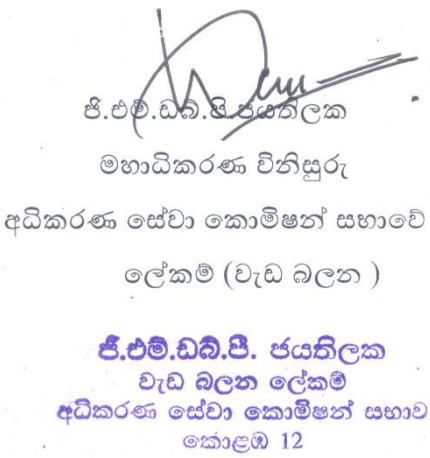 ජි.එම්.ඩබ්.පි.ජයතිලක
මහාධිකරණ විනිසුරු
අධිකරණ සේවා කොමිෂන් සභාවේ
ලේකම් (වැඩ බලන )
ජී.එම්.ඩබ්.පී. ජයතිලක
වැඩ බලන ලේකම්
අධිකරණ සේවා කොමිෂන් සභාව
කොළඹ 12